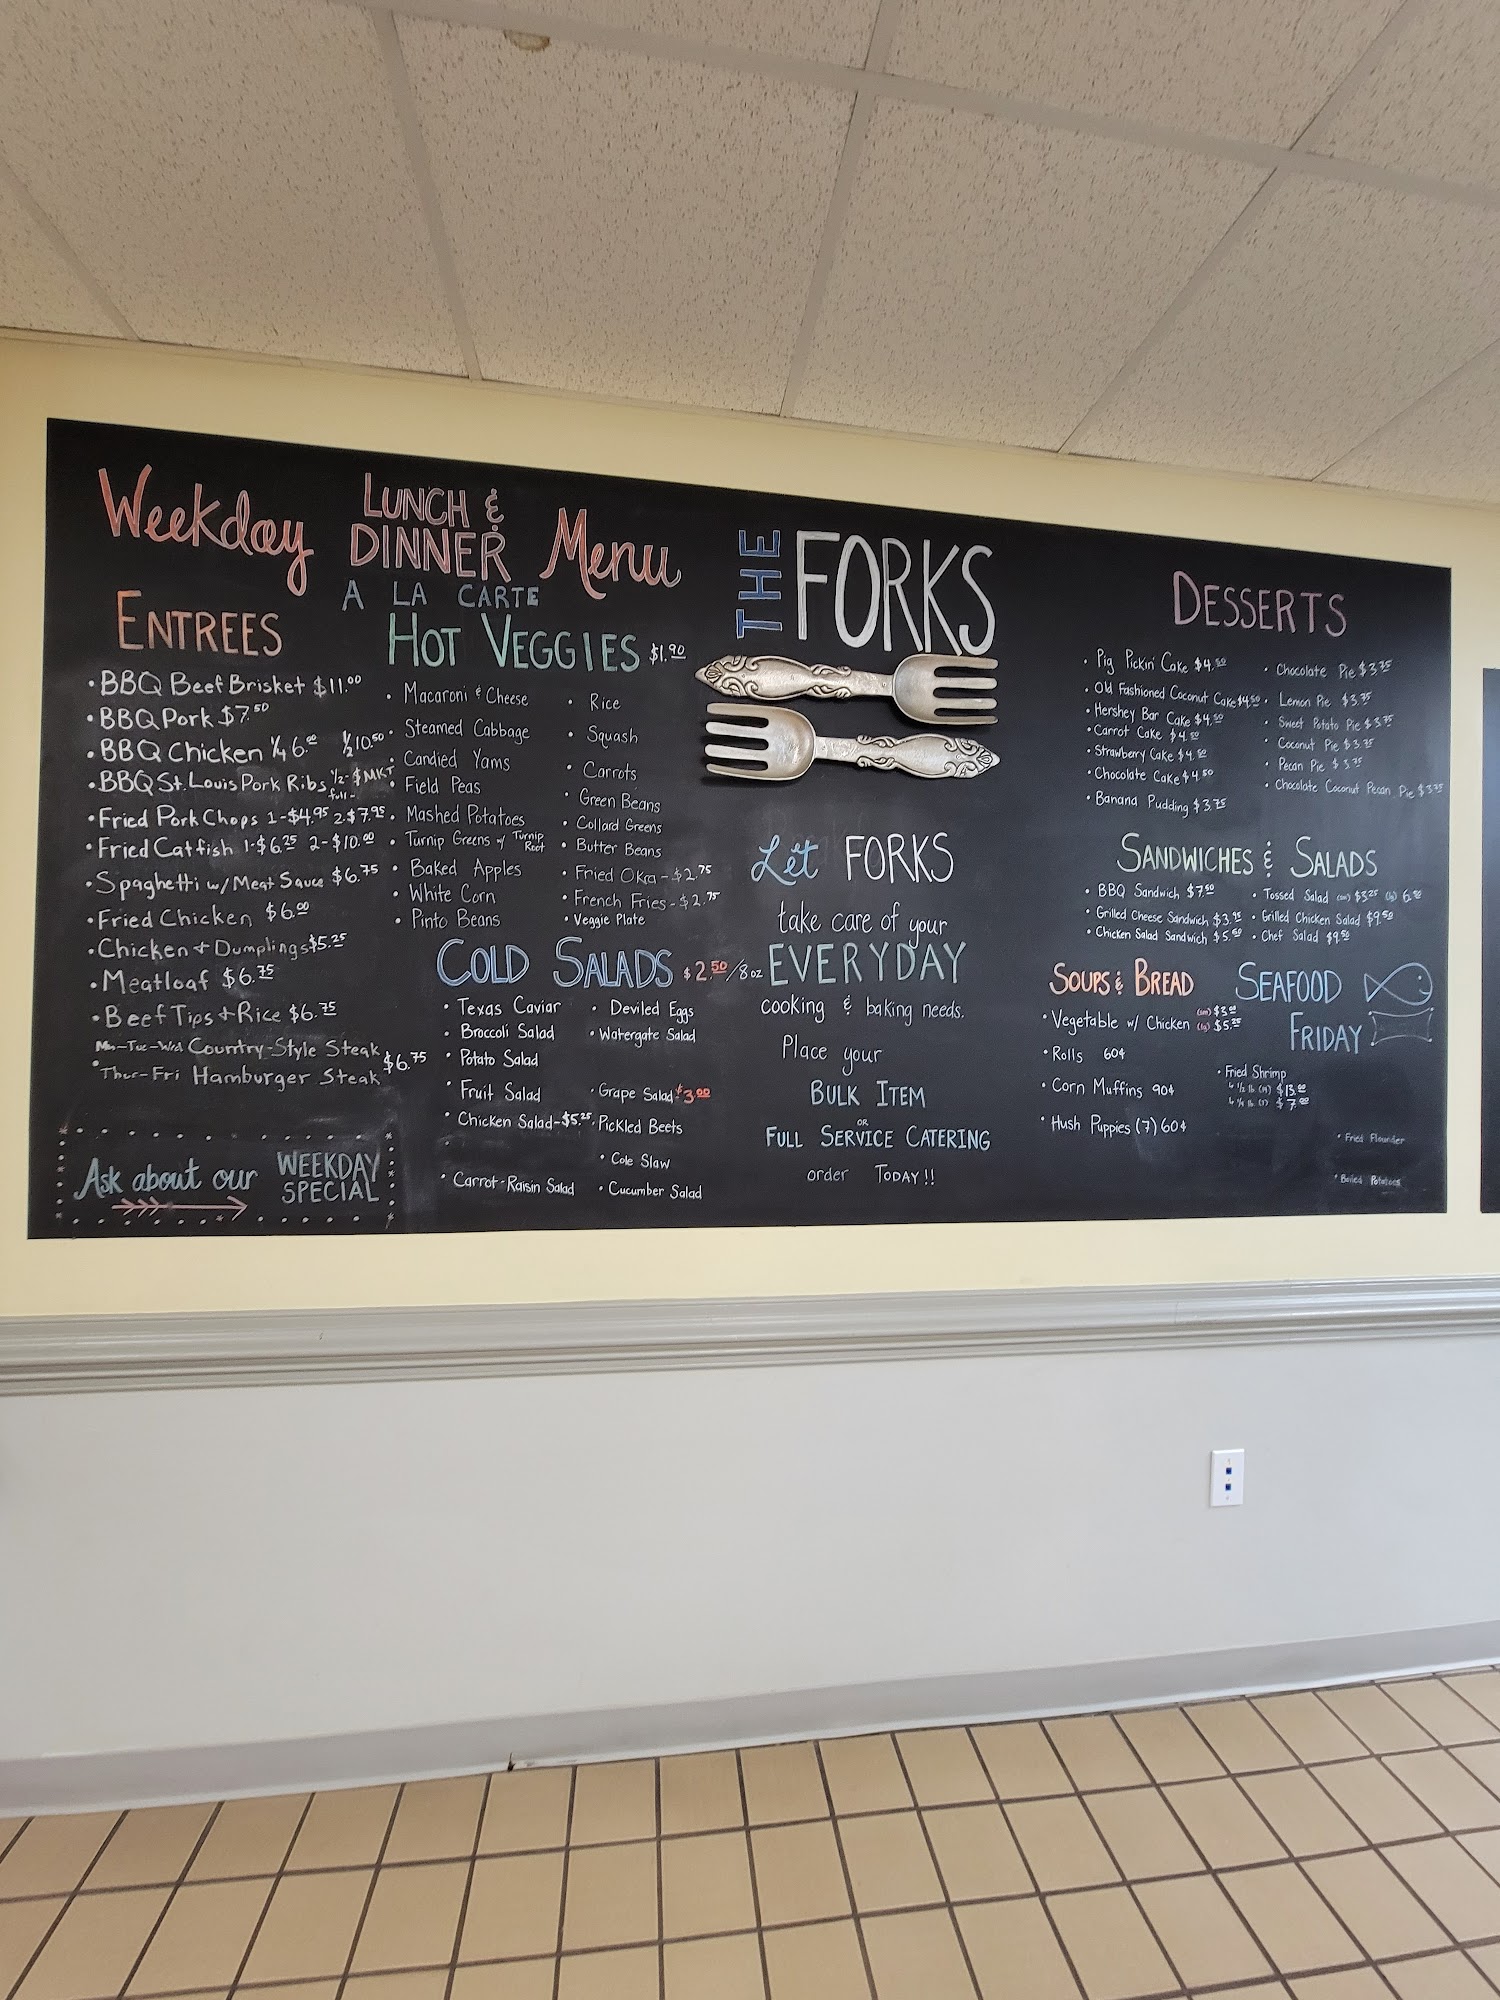 Weekday LUNCH & DINNER Menu
A LA CARTE
ENTREES
• BBQ Beef Brisket $11.00
• BBQ Pork $7.50
• BBQ Chicken 1/4 6.00 1/2 10.50
• BBQ St. Louis Pork Ribs 1/2 - $MKT
full -
• Fried Pork Chops 1-$4.95 2-$7.95
• Fried Catfish 1-$6.25 2-$10.00
• Spaghetti w/ Meat Sauce $6.75
• Fried Chicken $6.00
• Chicken + Dumplings $5.25
• Meatloaf $6.75
• Beef Tips + Rice $6.75
• Mon-Tue-Wed Country-Style Steak $6.75
Thur-Fri Hamburger Steak
Ask about our WEEKDAY SPECIAL
HOT VEGGIES $1.90
• Macaroni & Cheese
• Steamed Cabbage
• Candied Yams
• Field Peas
• Mashed Potatoes
• Turnip Greens w/ Turnip Root
• Baked Apples
• White Corn
• Pinto Beans
• Rice
• Squash
• Carrots
• Green Beans
• Collard Greens
• Butter Beans
• Fried Okra - $2.75
• French Fries - $2.75
• Veggie Plate
COLD SALADS $2.50/8oz
• Texas Caviar
• Broccoli Salad
• Potato Salad
• Fruit Salad
• Chicken Salad - $5.25
• Carrot-Raisin Salad
• Deviled Eggs
• Watergate Salad
• Grape Salad $3.00
• Pickled Beets
• Cole Slaw
• Cucumber Salad
THE FORKS
Let FORKS
take care of your
EVERYDAY
cooking & baking needs.
Place your
BULK ITEM
OR
FULL SERVICE CATERING
order TODAY!!
DESSERTS
• Pig Pickin' Cake $4.50
• Old Fashioned Coconut Cake $4.50
• Hershey Bar Cake $4.50
• Carrot Cake $4.50
• Strawberry Cake $4.50
• Chocolate Cake $4.50
• Banana Pudding $3.75
• Chocolate Pie $3.75
• Lemon Pie $3.75
• Sweet Potato Pie $3.75
• Coconut Pie $3.75
• Pecan Pie $3.75
• Chocolate Coconut Pecan Pie $3.75
SANDWICHES & SALADS
• BBQ Sandwich $7.50
• Grilled Cheese Sandwich $3.95
• Chicken Salad Sandwich $5.50
• Tossed Salad (sm) $3.25 (lg) 6.50
• Grilled Chicken Salad $9.50
• Chef Salad $9.50
SOUPS & BREAD
• Vegetable w/ Chicken (sm) $3.00
(lg) $5.25
• Rolls 60¢
• Corn Muffins 90¢
• Hush Puppies (7) 60¢
SEAFOOD
FRIDAY
• Fried Shrimp
1/2 lb. (14) $13.00
1/4 lb. (7) $7.00
• Fried Flounder
• Boiled Potatoes